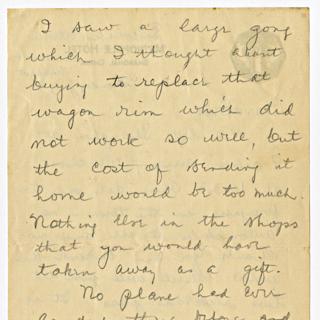 I saw a large gong
which I thought about
buying to replace that
wagon rim which did
not work so well, but
the cost of sending it
home would be too much.
Nothing else in the shops
that you would have
taken away as a gift.
No plane had ever